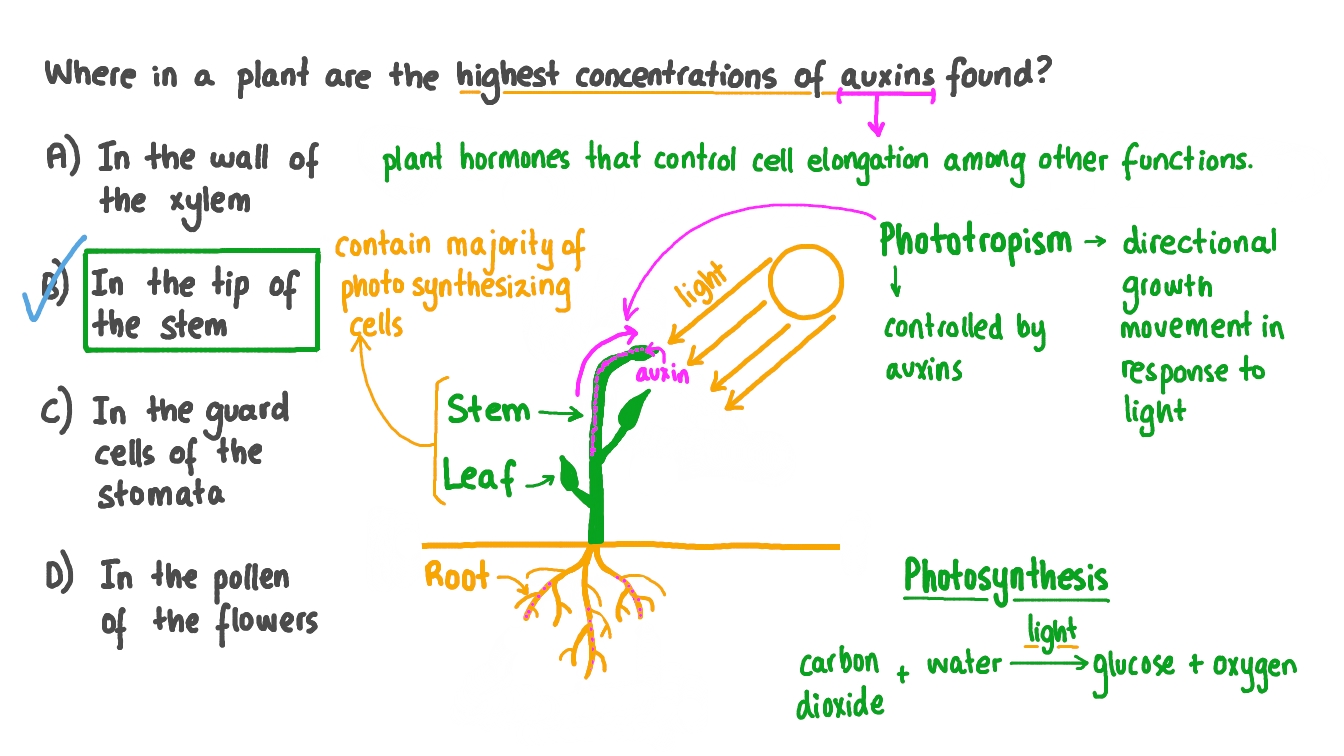 Where in a plant are the highest concentrations of auxins found?
A) In the wall of
the xylem
plant hormones that control cell elongation among other functions.
B) In the tip of
the stem
contain majority of
photo synthesizing
cells
light
auxin
Phototropism → directional
growth
movement in
response to
light
↓
controlled by
auxins
C) In the guard
cells of the
stomata
Stem →
Leaf →
D) In the pollen
of the flowers
Root
Photosynthesis
light
carbon
dioxide
+ water → glucose + oxygen